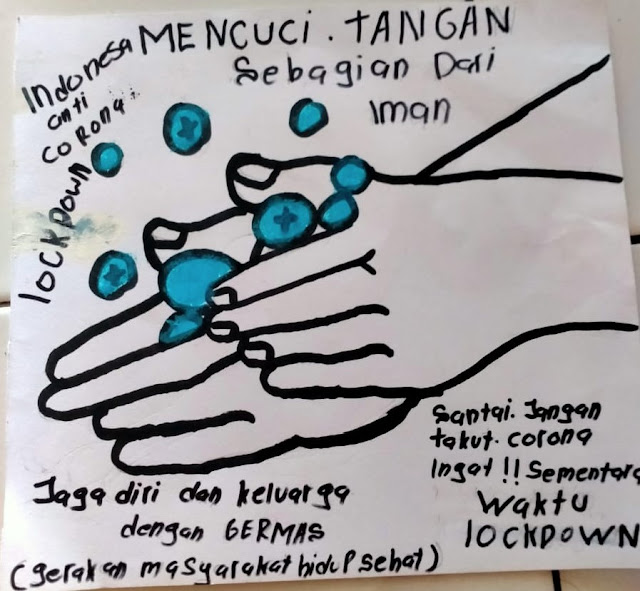 MENCUCI. TANGAN
Sebagian Dari
Iman
Indonesa
anti
corona..
lockDOWN
Santai. Jangan
takut. corona
Ingat!! Sementara
Waktu
lOCKDOWN
Jaga diri dan keluarga
dengan GERMAS
(gerakan masyarakat hidup sehat)